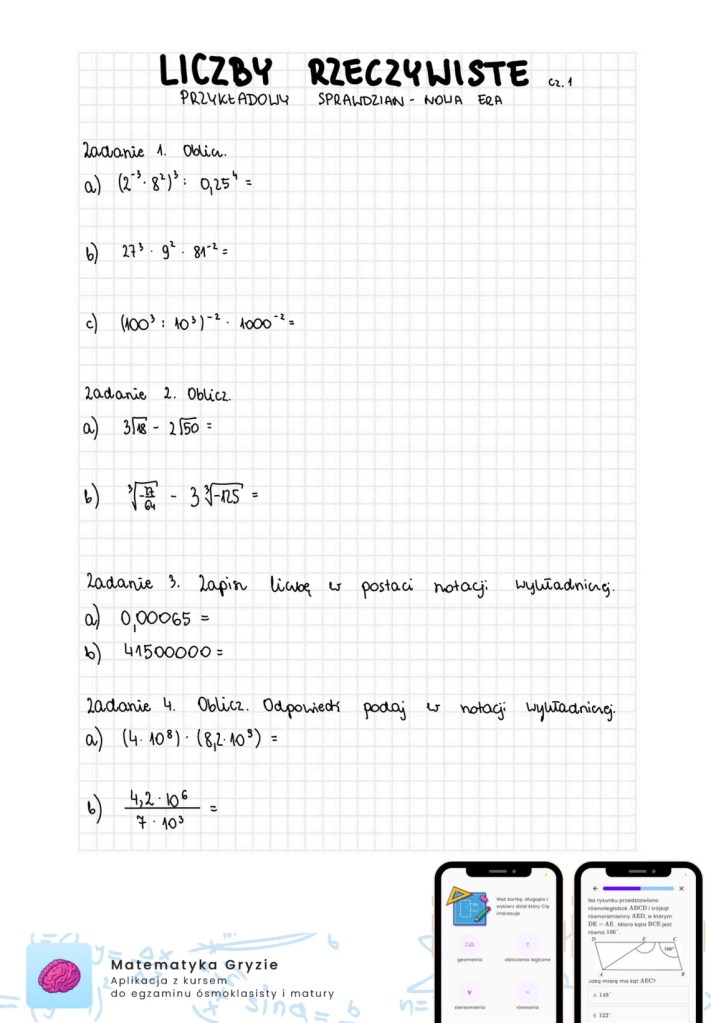 LICZBY RZECZYWISTE cz. 1
PRZYKŁADOWY SPRAWDZIAN - NOWA ERA
Zadanie 1. Oblicz.
a) (2⁻³ · 8²)³ : 0,25⁴ =
b) 27³ · 9² · 81⁻² =
c) (100³ : 10³)⁻² · 1000⁻² =
Zadanie 2. Oblicz.
a) 3√18 - 2√50 =
b) ³√(-27/64) - 3 ³√(-125) =
Zadanie 3. Zapisz liczbę w postaci notacji wykładniczej.
a) 0,00065 =
b) 41500000 =
Zadanie 4. Oblicz. Odpowiedź podaj w notacji wykładniczej.
a) (4 · 10⁸) · (8,2 · 10⁹) =
b) 4,2 · 10⁶ / 7 · 10³ =
Matematyka Gryzie
Aplikacja z kursem
do egzaminu ósmoklasisty i matury
Weź kartkę, długopis i
wybierz dział który Cię
interesuje
geometria
obliczenia logiczne
stereometria
równania
Na rysunku przedstawiono
równoległobok ABCD i trójkąt
równoramienny AED, w którym
DE = AE. Miara kąta BCE jest
równa 106°.
D E C
106°
A B
Jaką miarę ma kąt AEC?
A 148°
B 122°